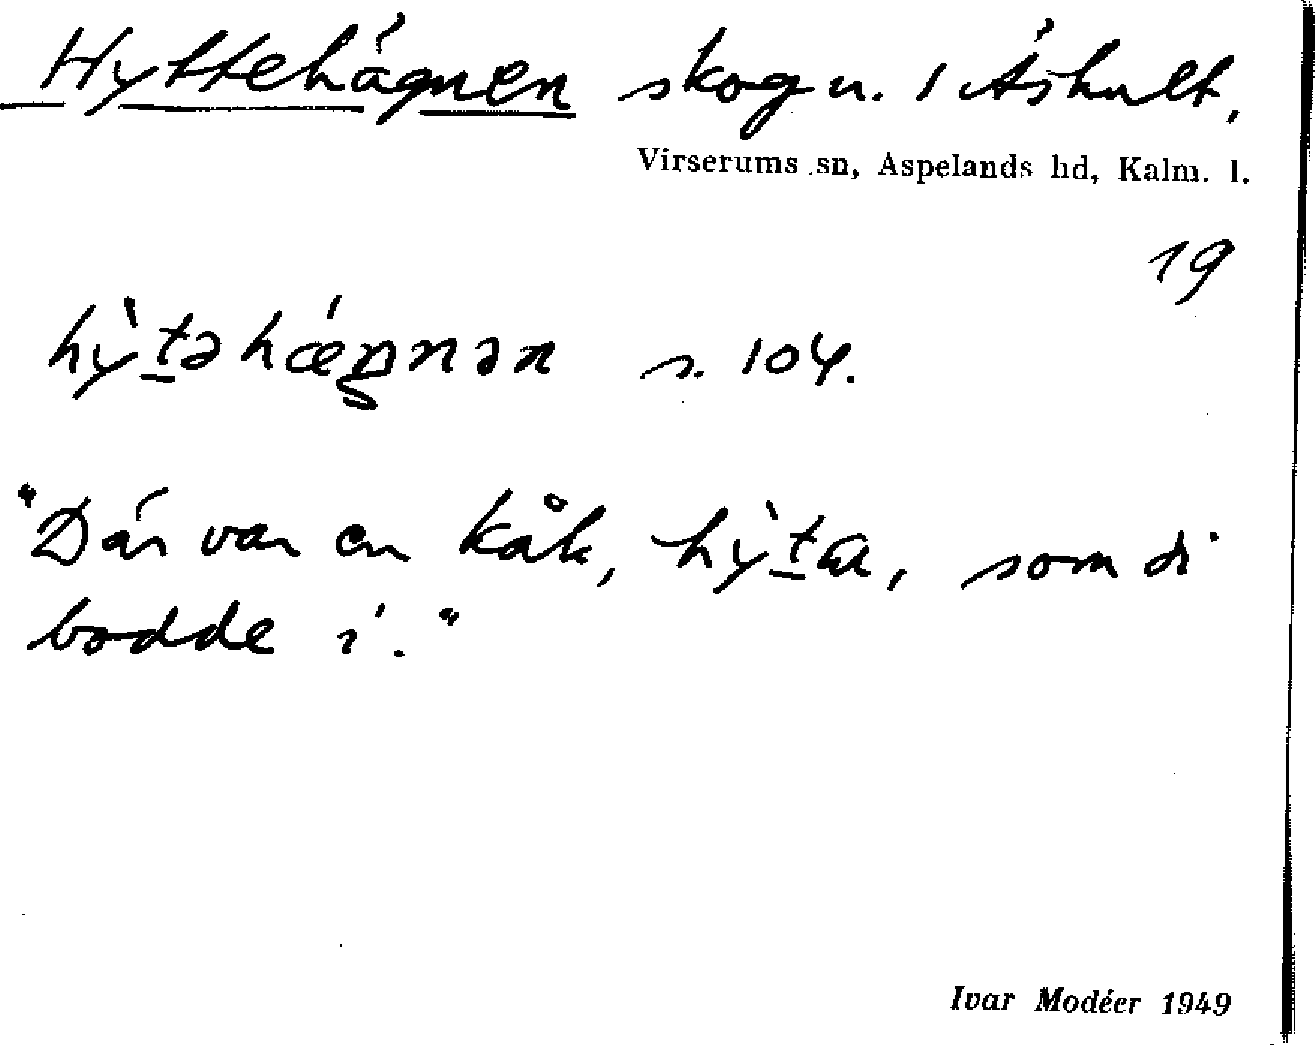 Hyttehägnen skog u. / Åshult,
Virserums sn, Aspelands hd, Kalm. l.
19
hỳt̠əhǽŋnən s. 104.
"Där var en kåk, hỳt̠a, som di
bodde i."
Ivar Modéer 1949